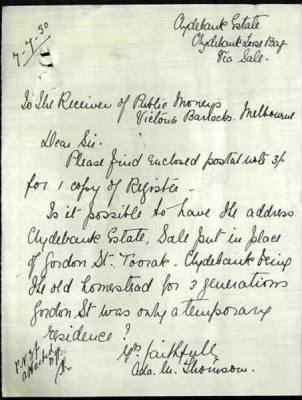 Clydebank Estate
Clydebank Loose Bag
Via Sale.
7-7-30
To The Receiver of Public Moneys
Victoria Barracks. Melbourne
Dear Sir.
Please find enclosed postal note 3/-
for 1 copy of Register.
Is it possible to have the address
Clydebank Estate, Sale put in place
of Gordon St. Toorak. Clydebank being
the old homestead for 3 generations
Gordon St was only a temporary
residence?
Yrs faithfully
Ada. M. Thomson.
P.N. 3/-
attached